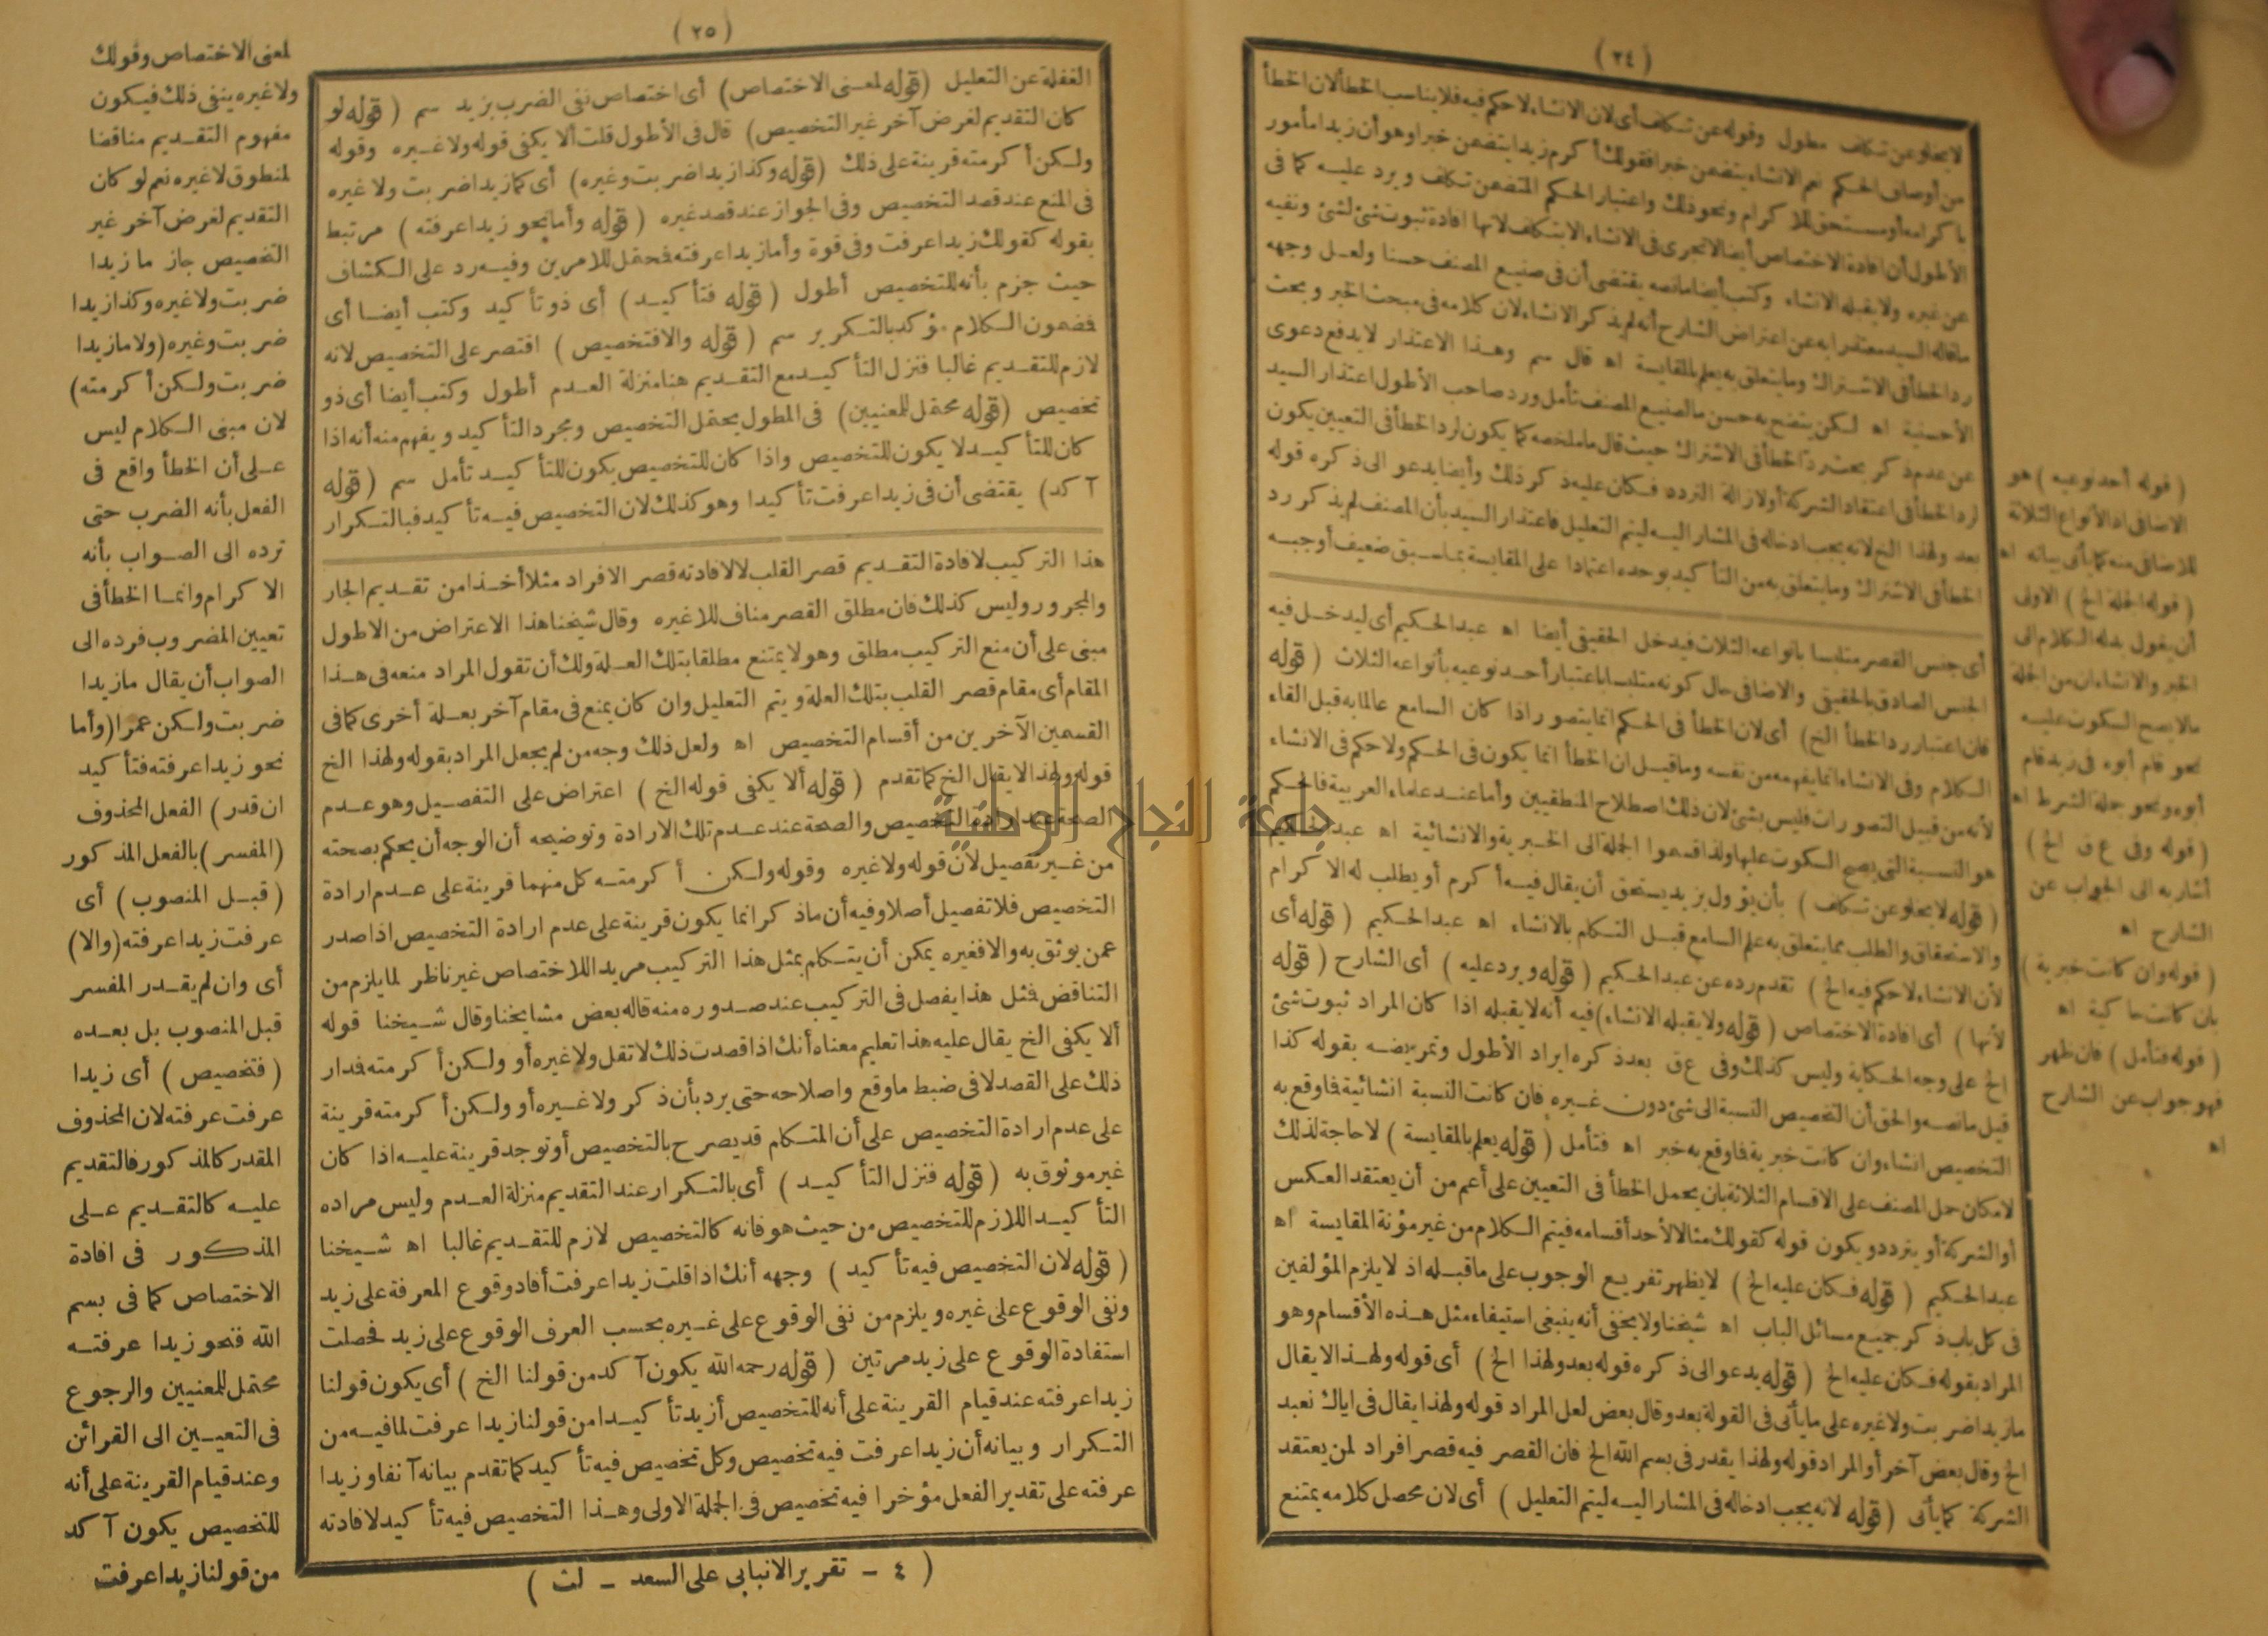 ( ٢٤ )
لا يخلو عن تكلف مطول وقوله عن تكلف أى لان الانشاء لا حكم فيه فلا يناسب الخطأ لان الخطأ
من أوصاف الحكم نعم الانشاء يتضمن خبرا فقولك أكرم زيدا يتضمن خبرا وهو أن زيدا مأمور
باكرامه أو مستحق للاكرام ونحو ذلك واعتبار الحكم المتضمن تكلف ويرد عليه كما فى
الأطول أن افادة الاختصاص أيضا لا تجرى فى الانشاء الا بتكلف لانها افادة ثبوت شئ لشئ ونفيه
عن غيره ولا يقبله الانشاء وكتب أيضا ما نصه يقتضى أن فى صنيع المصنف حسنا ولعل وجهه
ما قاله السيد معتذرا به عن اعتراض الشارح أنه لم يذكر الانشاء لان كلامه فى مبحث الخبر وبحث
رد الخطأ فى الاشتراك وما يتعلق به يعلم بالمقايسة اه قال سم وهذا الاعتذار لا يدفع دعوى
الأحسنية اه لكن يتضح به حسن ما لصنيع المصنف تأمل ورد صاحب الأطول اعتذار السيد
عن عدم ذكر بحث رد الخطأ فى الاشتراك حيث قال ما ملخصه كما يكون لرد الخطأ فى التعيين يكون
لرد الخطأ فى اعتقاد الشركة أو لازالة التردد فكان عليه ذكر ذلك وأيضا يدعو الى ذكره قوله
بعد ولهذا الخ لانه يجب ادخاله فى المشار اليه ليتم التعليل فاعتذار السيد بأن المصنف لم يذكر رد
الخطأ فى الاشتراك وما يتعلق به من التأكيد بوحده اعتمادا على المقايسة بما سبق ضعيف أوجبه
أى جنس القصر متلبسا بانواعه الثلاث فيدخل الحقيقى أيضا اه عبد الحكيم أى ليدخل فيه
الجنس الصادق بالحقيقى والاضافى حال كونه متلبسا باعتبار أحد نوعيه بأنواعه الثلاث ( قوله
فان اعتبار رد الخطأ الخ ) أى لان الخطأ فى الحكم انما يتصور اذا كان السامع عالما به قبل القاء
الكلام وفى الانشاء انما يفهمه من نفسه وما قيل ان الخطأ انما يكون فى الحكم ولا حكم فى الانشاء
لأنه من قبيل التصورات فليس بشئ لان ذلك اصطلاح المنطقيين وأما عند علماء العربية فالحكم
هو النسبة التى يصح السكوت عليها ولذا قسموا الجملة الى الخبرية والانشائية اه عبد الحكيم
( قوله لا يخلو عن تكلف ) بأن يؤول بزيد يستحق أن يقال فيه أكرم أو يطلب له الاكرام
والاستحقاق والطلب مما يتعلق به علم السامع قبل التكلم بالانشاء اه عبد الحكيم ( قوله أى
لأن الانشاء لا حكم فيه الخ ) تقدم رده عن عبد الحكيم ( قوله ويرد عليه ) أى الشارح ( قوله
لأنها ) أى افادة الاختصاص ( قوله ولا يقبله الانشاء ) فيه أنه لا يقبله اذا كان المراد ثبوت شئ
الخ على وجه الحكاية وليس كذلك وفى ع ق بعد ذكره ايراد الأطول وتمريضه بقوله كذا
قيل ما نصه والحق أن التخصيص النسبة الى شئ دون غيره فان كانت النسبة انشائية فما وقع به
التخصيص انشاء وان كانت خبرية فما وقع به خبر اه فتأمل ( قوله يعلم بالمقايسة ) لا حاجة لذلك
لامكان حمل المصنف على الاقسام الثلاثة بان يحمل الخطأ فى التعيين على أعم من أن يعتقد العكس
أو الشركة أو يتردد ويكون قوله كقولك مثالا لأحد أقسامه فيتم الكلام من غير مؤنة المقايسة اه
عبد الحكيم ( قوله فكان عليه الخ ) لا يظهر تفريع الوجوب على ما قبله اذ لا يلزم المؤلفين
فى كل باب ذكر جميع مسائل الباب اه شيخنا ولا يخفى أنه ينبغى استيفاء مثل هذه الأقسام وهو
المراد بقوله فكان عليه الخ ( قوله يدعو الى ذكره قوله بعد ولهذا الخ ) أى قوله ولهذا لا يقال
ما زيدا ضربت ولا غيره على ما يأتى فى القولة بعد وقال بعض لعل المراد قوله ولهذا يقال فى اياك نعبد
الخ وقال بعض آخر أو المراد قوله ولهذا يقدر فى بسم الله الخ فان القصر فيه قصر افراد لمن يعتقد
الشركة كما يأتى ( قوله لانه يجب ادخاله فى المشار اليه ليتم التعليل ) أى لان محصل كلامه يمتنع
( قوله أحد نوعيه ) هو
الاضافى اذ الأنواع الثلاثة
للاضافى منه كما يأتى بيانه اه
( قوله الجملة الخ ) الاولى
أن يقول بدله الكلام الى
الخبر والانشاء لان من الجملة
ما لا يصح السكوت عليه
نحو قام أبوه فى زيد قام
أبوه ونحو جملة الشرط اه
( قوله وفى ع ق الخ )
أشار به الى الجواب عن
الشارح اه
( قوله وان كانت خبرية )
بان كانت حاكية اه
( قوله فتأمل ) فان ظهر
فهو جواب عن الشارح
اه
( ٢٥ )
الغفلة عن التعليل ( قوله لمعنى الاختصاص ) أى اختصاص نفى الضرب بزيد سم ( قوله لو
كان التقديم لغرض آخر غير التخصيص ) قال فى الأطول قلت ألا يكفى قوله ولا غيره وقوله
ولكن أكرمته قرينة على ذلك ( قوله وكذا زيدا ضربت وغيره ) أى كما زيدا ضربت ولا غيره
فى المنع عند قصد التخصيص وفى الجواز عند قصد غيره ( قوله وأما نحو زيدا عرفته ) مرتبط
بقوله كقولك زيدا عرفت وفى قوة وأما زيدا عرفته فمحتمل للامرين وفيه رد على الكشاف
حيث جزم بأنه للتخصيص أطول ( قوله فتأكيد ) أى ذو تأكيد وكتب أيضا أى
فمضمون الكلام مؤكد بالتكرير سم ( قوله والا فتخصيص ) اقتصر على التخصيص لانه
لازم للتقديم غالبا فنزل التأكيد مع التقديم هنا منزلة العدم أطول وكتب أيضا أى ذو
تخصيص ( قوله محتمل للمعنيين ) فى المطول يحتمل التخصيص ومجرد التأكيد ويفهم منه أنه اذا
كان للتأكيد لا يكون للتخصيص واذا كان للتخصيص يكون للتأكيد تأمل سم ( قوله
آكد ) يقتضى أن فى زيدا عرفت تأكيدا وهو كذلك لان التخصيص فيه تأكيد فبالتكرار
هذا التركيب لافادة التقديم قصر القلب لا لافادته قصر الافراد مثلا أخذا من تقديم الجار
والمجرور وليس كذلك فان مطلق القصر مناف للاغيره وقال شيخنا هذا الاعتراض من الاطول
مبنى على أن منع التركيب مطلق وهو لا يمتنع مطلقا بتلك العلة ولك أن تقول المراد منعه فى هذا
المقام أى مقام قصر القلب بتلك العلة ويتم التعليل وان كان يمنع فى مقام آخر بعلة أخرى كما فى
القسمين الآخرين من أقسام التخصيص اه ولعل ذلك وجه من لم يجعل المراد بقوله ولهذا الخ
قوله ولهذا لا يقال الخ كما تقدم ( قوله ألا يكفى قوله الخ ) اعتراض على التفصيل وهو عدم
الصحة عند ارادة التخصيص والصحة عند عدم تلك الارادة وتوضيحه أن الوجه أن يحكم بصحته
من غير تفصيل لأن قوله ولا غيره وقوله ولكن أكرمته كل منهما قرينة على عدم ارادة
التخصيص فلا تفصيل أصلا وفيه أن ما ذكر انما يكون قرينة على عدم ارادة التخصيص اذا صدر
عمن يوثق به والا فغيره يمكن أن يتكلم بمثل هذا التركيب مريدا للاختصاص غير ناظر لما يلزم من
التناقض فمثل هذا يفصل فى التركيب عند صدوره منه قاله بعض مشايخنا وقال شيخنا قوله
ألا يكفى الخ يقال عليه هذا تعليم معناه أنك اذا قصدت ذلك لا تقل ولا غيره أو ولكن أكرمته فدار
ذلك على القصد لا فى ضبط ما وقع واصلاحه حتى يرد بأن ذكر ولا غيره أو ولكن أكرمته قرينة
على عدم ارادة التخصيص على أن المتكلم قد يصرح بالتخصيص أو توجد قرينة عليه اذا كان
غير موثوق به ( قوله فنزل التأكيد ) أى بالتكرار عند التقديم منزلة العدم وليس مراده
التأكيد اللازم للتخصيص من حيث هو فانه كالتخصيص لازم للتقديم غالبا اه شيخنا
( قوله لان التخصيص فيه تأكيد ) وجهه أنك اذا قلت زيدا عرفت أفاد وقوع المعرفة على زيد
ونفى الوقوع على غيره ويلزم من نفى الوقوع على غيره بحسب العرف الوقوع على زيد فحصلت
استفادة الوقوع على زيد مرتين ( قوله رحمه الله يكون آكد من قولنا الخ ) أى يكون قولنا
زيدا عرفته عند قيام القرينة على أنه للتخصيص أزيد تأكيدا من قولنا زيدا عرفت لما فيه من
التكرار وبيانه أن زيدا عرفت فيه تخصيص وكل تخصيص فيه تأكيد كما تقدم بيانه آنفا وزيدا
عرفته على تقدير الفعل مؤخرا فيه تخصيص فى الجملة الاولى وهذا التخصيص فيه تأكيد لافادته
( ٤ - تقرير الانبابى على السعد - لث )
لمعنى الاختصاص وقولك
ولا غيره ينفى ذلك فيكون
مفهوم التقديم مناقضا
لمنطوق لا غيره نعم لو كان
التقديم لغرض آخر غير
التخصيص جاز ما زيدا
ضربت ولا غيره وكذا زيدا
ضربت وغيره ( ولا ما زيدا
ضربت ولكن أكرمته )
لان مبنى الكلام ليس
على أن الخطأ واقع فى
الفعل بأنه الضرب حتى
ترده الى الصواب بأنه
الاكرام وانما الخطأ فى
تعيين المضروب فرده الى
الصواب أن يقال ما زيدا
ضربت ولكن عمرا ( وأما
نحو زيدا عرفته فتأكيد
ان قدر ) الفعل المحذوف
( المفسر ) بالفعل المذكور
( قبل المنصوب ) أى
عرفت زيدا عرفته ( والا )
أى وان لم يقدر المفسر
قبل المنصوب بل بعده
( فتخصيص ) أى زيدا
عرفت عرفته لان المحذوف
المقدر كالمذكور فالتقديم
عليه كالتقديم على
المذكور فى افادة
الاختصاص كما فى بسم
الله فنحو زيدا عرفته
محتمل للمعنيين والرجوع
فى التعيين الى القرائن
وعند قيام القرينة على أنه
للتخصيص يكون آكد
من قولنا زيدا عرفت
جامعة النجاح الوطنية